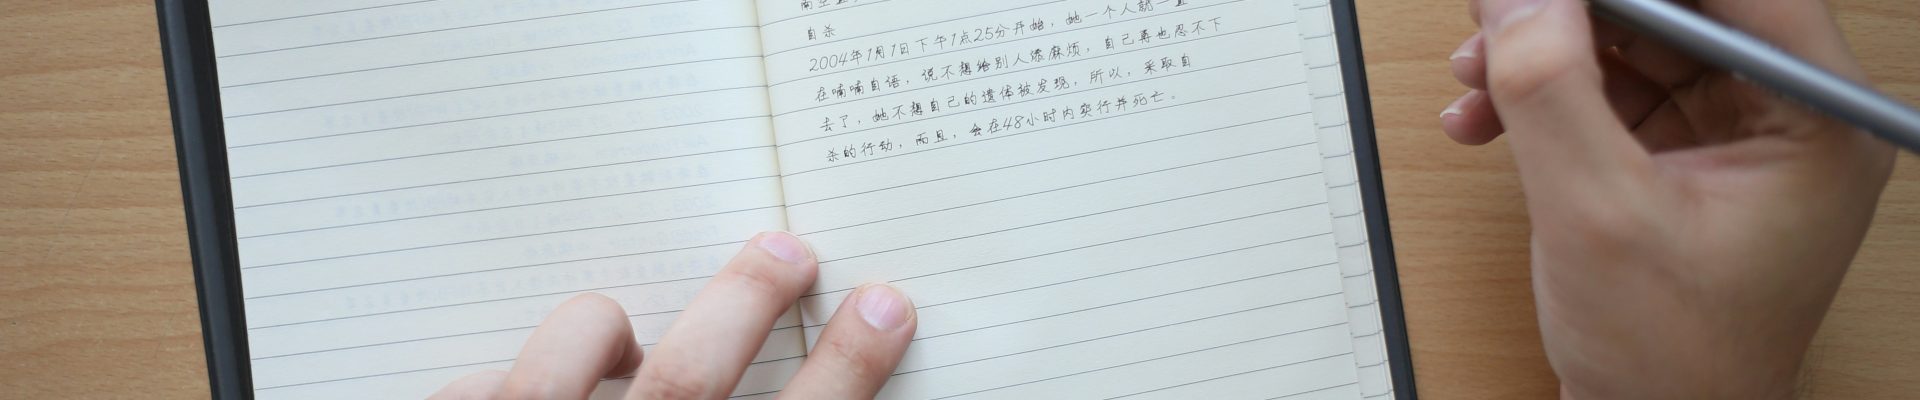 南空直
自杀
2004年1月1日下午1点25分开始，她一个人就一直
在喃喃自语，说不想给别人添麻烦，自己再也忍不下
去了，她不想自己的遗体被发现，所以，采取自
杀的行动，而且，会在48小时内实行并死亡。